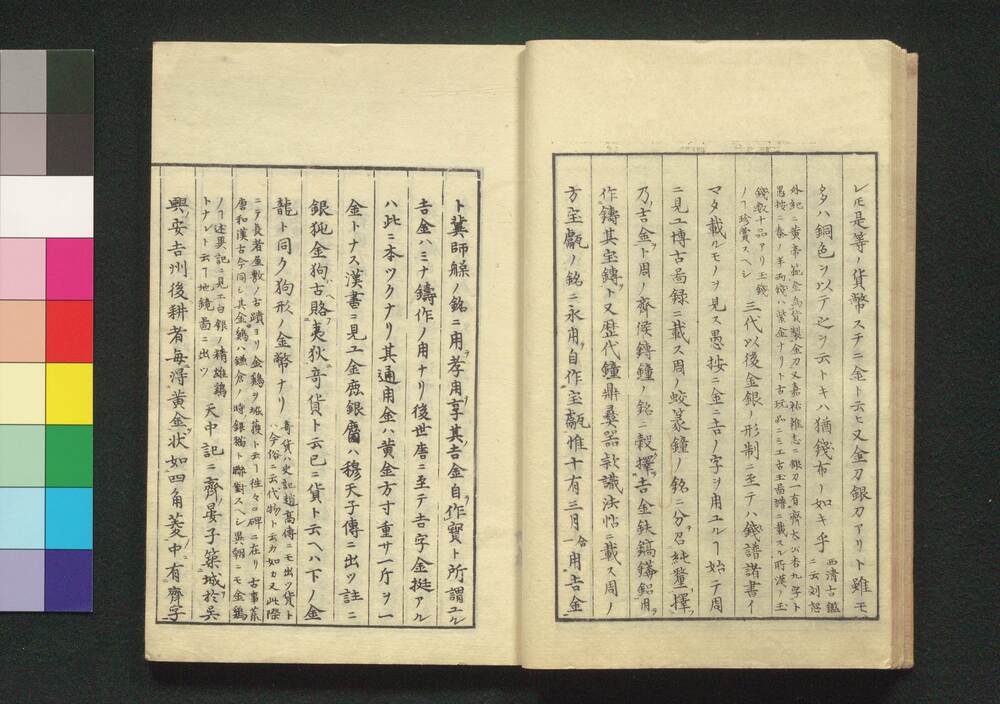 レモ是等ノ貨幣スチニ金ト云ヒ又金刀銀刀アリト雖モ
タヽハ銅色ヲ以テ之ヲ云トキハ猶錢布ノ如キ乎
西清古鑑
ニ云刘恕
外紀ニ黄帝範金為貨製金刀又嘉祐雜志ニ銀刀一有齊太公
愚按ニ
錢数十品アリ玉錢
ノ丁珍賞スヘシ
三代以後金銀ノ形制ニ至テハ錢譜諸書イ
マタ載ルモノヲ見ス愚按ニ金ニ吉ノ字ヲ用ユル丁始テ周
ニ見ユ博古圖録ニ載ス周ノ蛟篆鐘ノ銘ニ分召純釐擇
乃吉金ト周ノ齊侯鎛鐘ノ銘ニ擇吉金鈇鎬鋁用
作鑄其宝鎛ト又歴代鐘鼎彝器款識法帖ニ載ス周ノ
方宝甗ノ銘ニ永用自作宝甗惟十有三月一合用吉金
ト龔師艅ノ銘ニ用孝用享其吉金自作寳ト所謂ユル
吉金ハミナ鑄作ノ用ナリ後世唐ニ至テ吉字金挺アル
ハ此ニ本ツクナリ其通用金ハ黄金方寸重サ一斤ヲ一
金トナス漢書ニ見ユ金鹿銀麕ハ穆天子傳ニ出ツ註ニ
銀狗金狗古賂夷狄竒貨ト云已ニ貨ト云ヘハ下ノ金
龍ト同ク狗形ノ金幣ナリ
竒貨ハ史記趙髙傳ニモ出ツ貨ト
ハ今俗ニ云代物ト云カ如カ又此際
ニテ長者屋敷ノ古蹟ヨリ金鷄ヲ堀獲ト云丁往々口碑ニ在リ古事
唐和漢古今同シ其金鷄ハ鎌倉ノ時銀猫ト聯對スヘシ異朝ニモ金鷄
ノ丁述異記ニ見エ白銀ノ精雄鷄
トナルト云丁地鏡圖ニ出ツ
天中記ニ齊晏子築城於吳
興安吉州後耕者毎淂黄金状如四角菱中有齊字